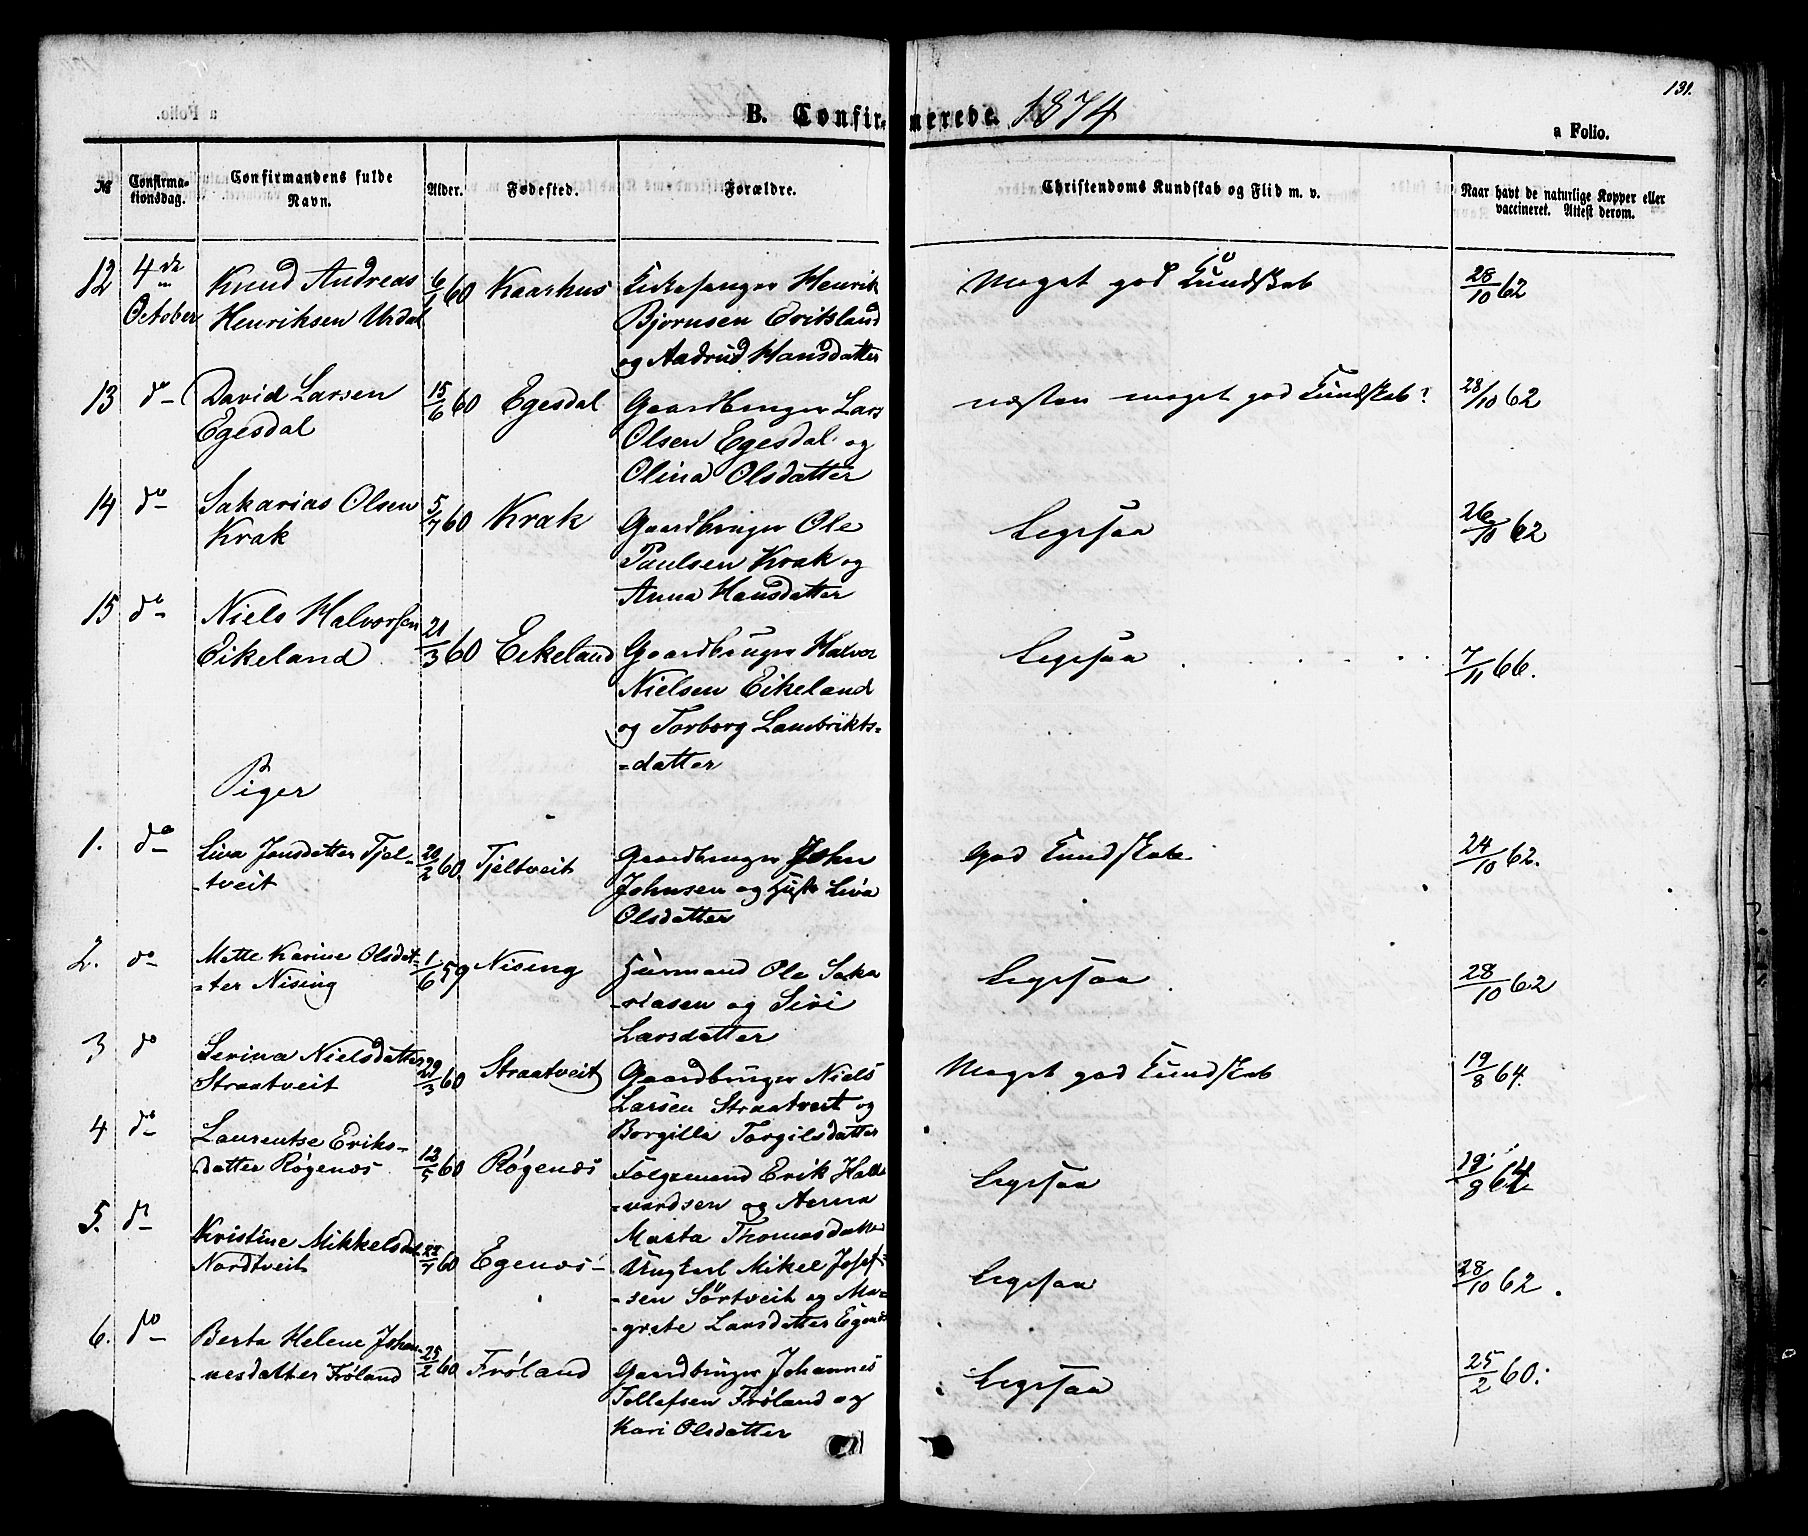 131.
a Folio.
B. Confirmerede. 1874
a Folio.
№
Confirmationsdag.
Confirmandens fulde Navn.
Alder.
Fødested.
Forældre.
Christendoms Kundskab og Flid m. v.
Naar havt de naturlige Kopper eller vaccineret. Attest derom.
12 4de October
Knud Andreas
Henriksen Urdal
6/1 60 Kaarhus
Kirkesanger Henrik
Bjørnsen Eriksland
og Hansdatter
Meget god Kundskab
28/10 62
13 do
David Larsen
Egesdal
15/6 60 Egesdal
Gaardbruger Lars
Olsen Egesdal og
Olina Olsdatter
næsten meget god Kundskab
28/10 62
14 do
Sakarias Olsen
Krak
5/7 60 Krak
Gaardbruger Ole
Paulsen Krak og
Anna Hansdatter
Ligesaa
26/10 62
15 do
Niels Halvorsen
Eikeland
21/3 60 Eikeland
Gaardbruger Halvor
Nielsen Eikeland
og Torborg Lambrikts-
=datter
Ligesaa
7/11 66.
Piger
1. do
Liva Jonsdatter Tjel-
-tveit
20/2 60. Tjeltveit
Gaardbruger John
Johnsen og Hustr Liva
Olsdatter
God Kundskab
24/10 62.
2. do
Mette Karine Olsdat-
-ter Nising
1/6 59 Nising
Huusmand Ole Saka
-riasen og Siri
Larsdatter
Ligesaa
28/10 62
3 do
Serina Nielsdatter
Straatveit
29/3 60 Straatveit
Gaardbruger Niels
Larsen Straatveit og
Borgilla Torgilsdatter
Meget god Kundskab
19/8 64.
4 do
Laurentse Eriks-
datter Røgenæs
12/5 60 Røgenæs
Følgemand Erik Hall
-vardsen og Anna
Marta Thomasdatter
Ligesaa
19/8 64
5. do
Kristine Mikkelsdat
Nordtveit
22/7 60 Egenæs
Ungkarl Mikel Josef-
-sen Sørtveit og Ma-
-grete Larsdatter Egenæs
Ligesaa
28/10 62.
6. do
Berta Helene Johan-
-nesdatter Frøland
25/2 60 Frøland
Gaardbruger Johannes
Tollefsen Frøland og
Kari Olsdatter
Ligesaa
25/2 60.